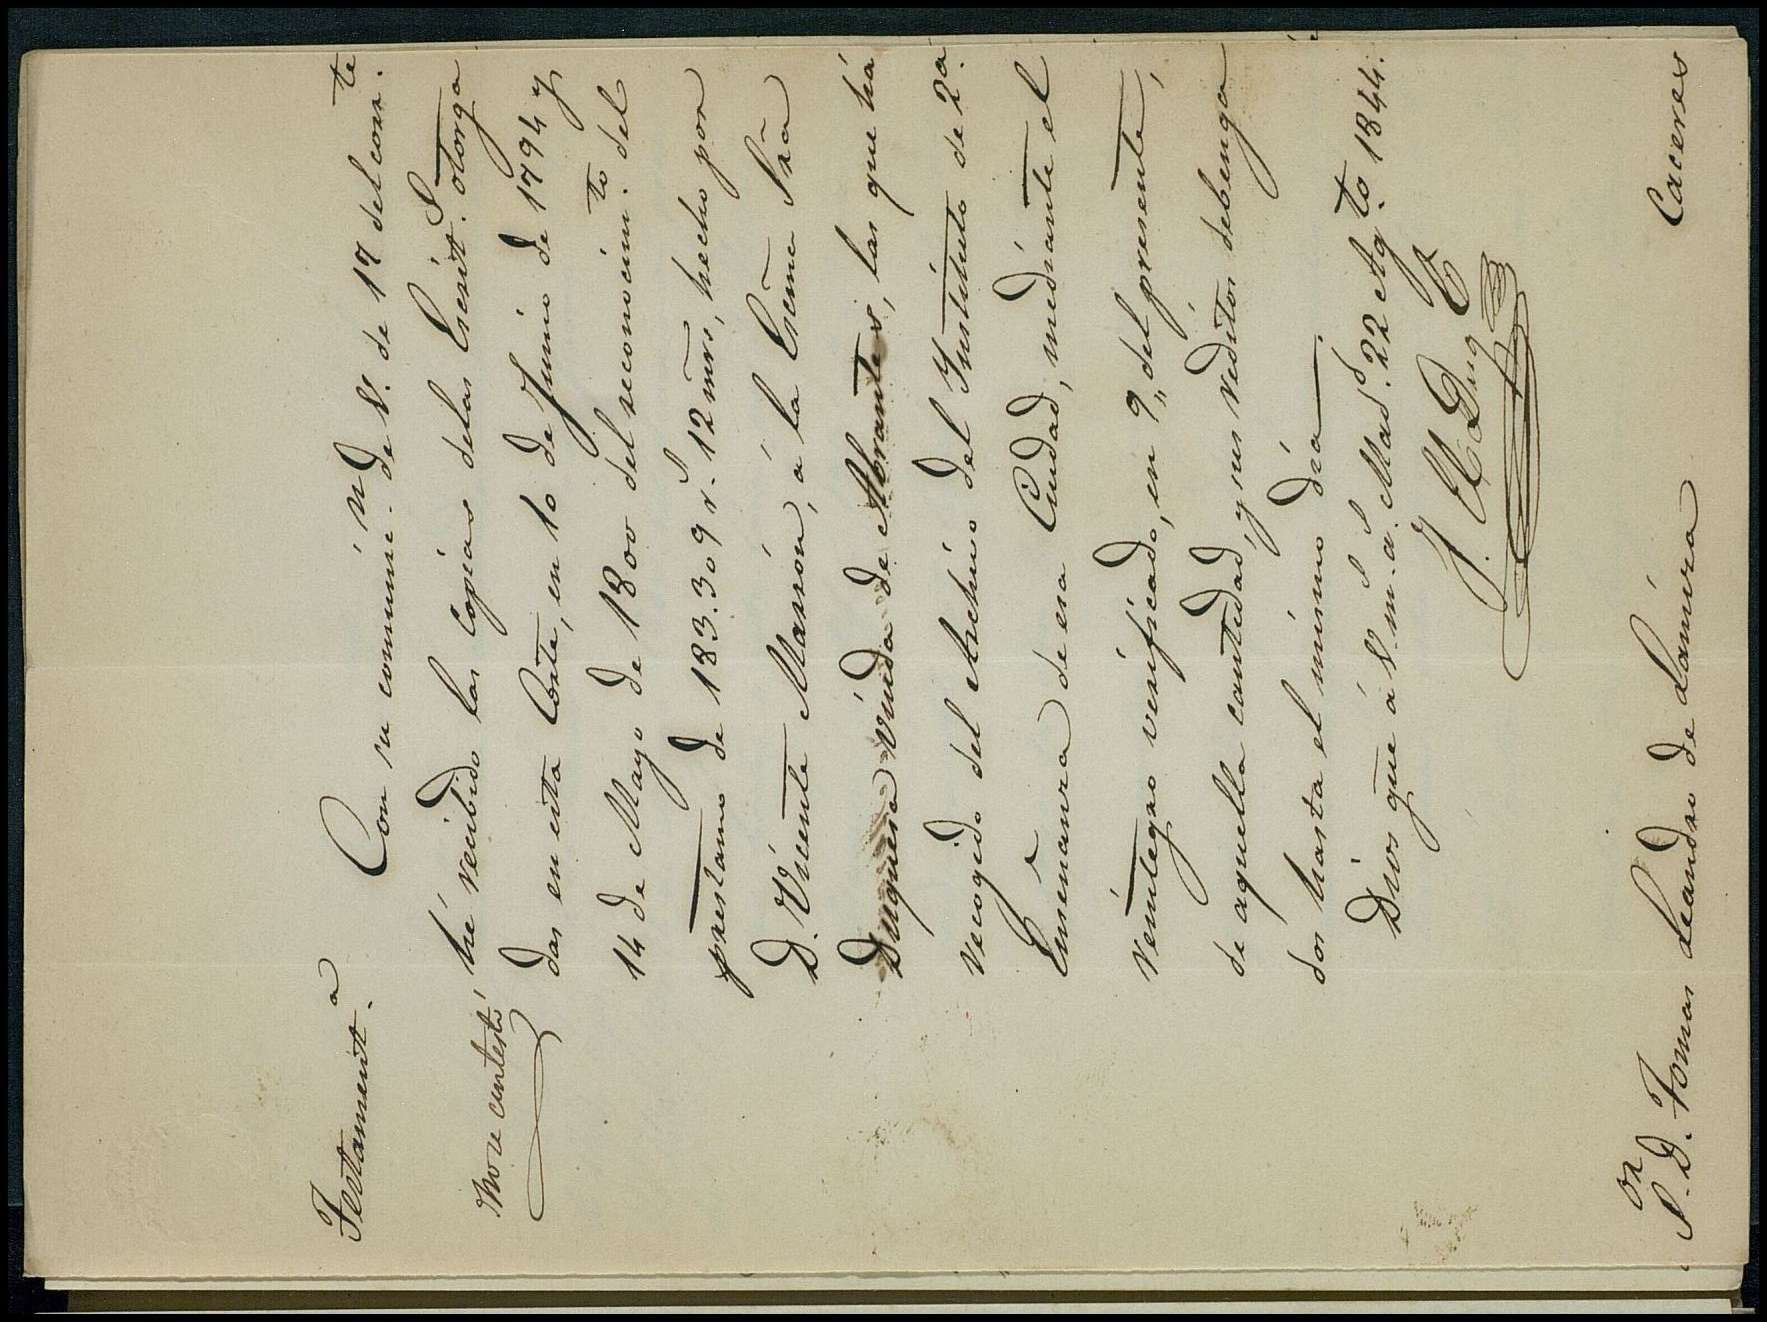 Testament.ª
Con su comunic.n de V. de 17 del corr.te
hé recibido las copias de las Escrit.s otorga
No se contestó
das en esta Corte, en 10 de Junio de 1794 y
14 de Mayo de 1800 del reconocim.to del
prestamo de 183.309 r.s 12 mrs, hecho por
D. Vicente Marrón, á la Excma Sra
Duquesa viuda de Abrantes, las que há
recogido del Archivo del Instituto de 2ª
Enseñanza de esa Ciudad, mediante el
reintegro verificado, en 9,, del presente,
de aquella cantidad, y sus reditos debenga
dos hasta el mismo dia.
Dios gue á V. m.s a.s Mad.d 22 Ag.to 1844.
S.or D. Tomas Leandro de Lamúra Caceres